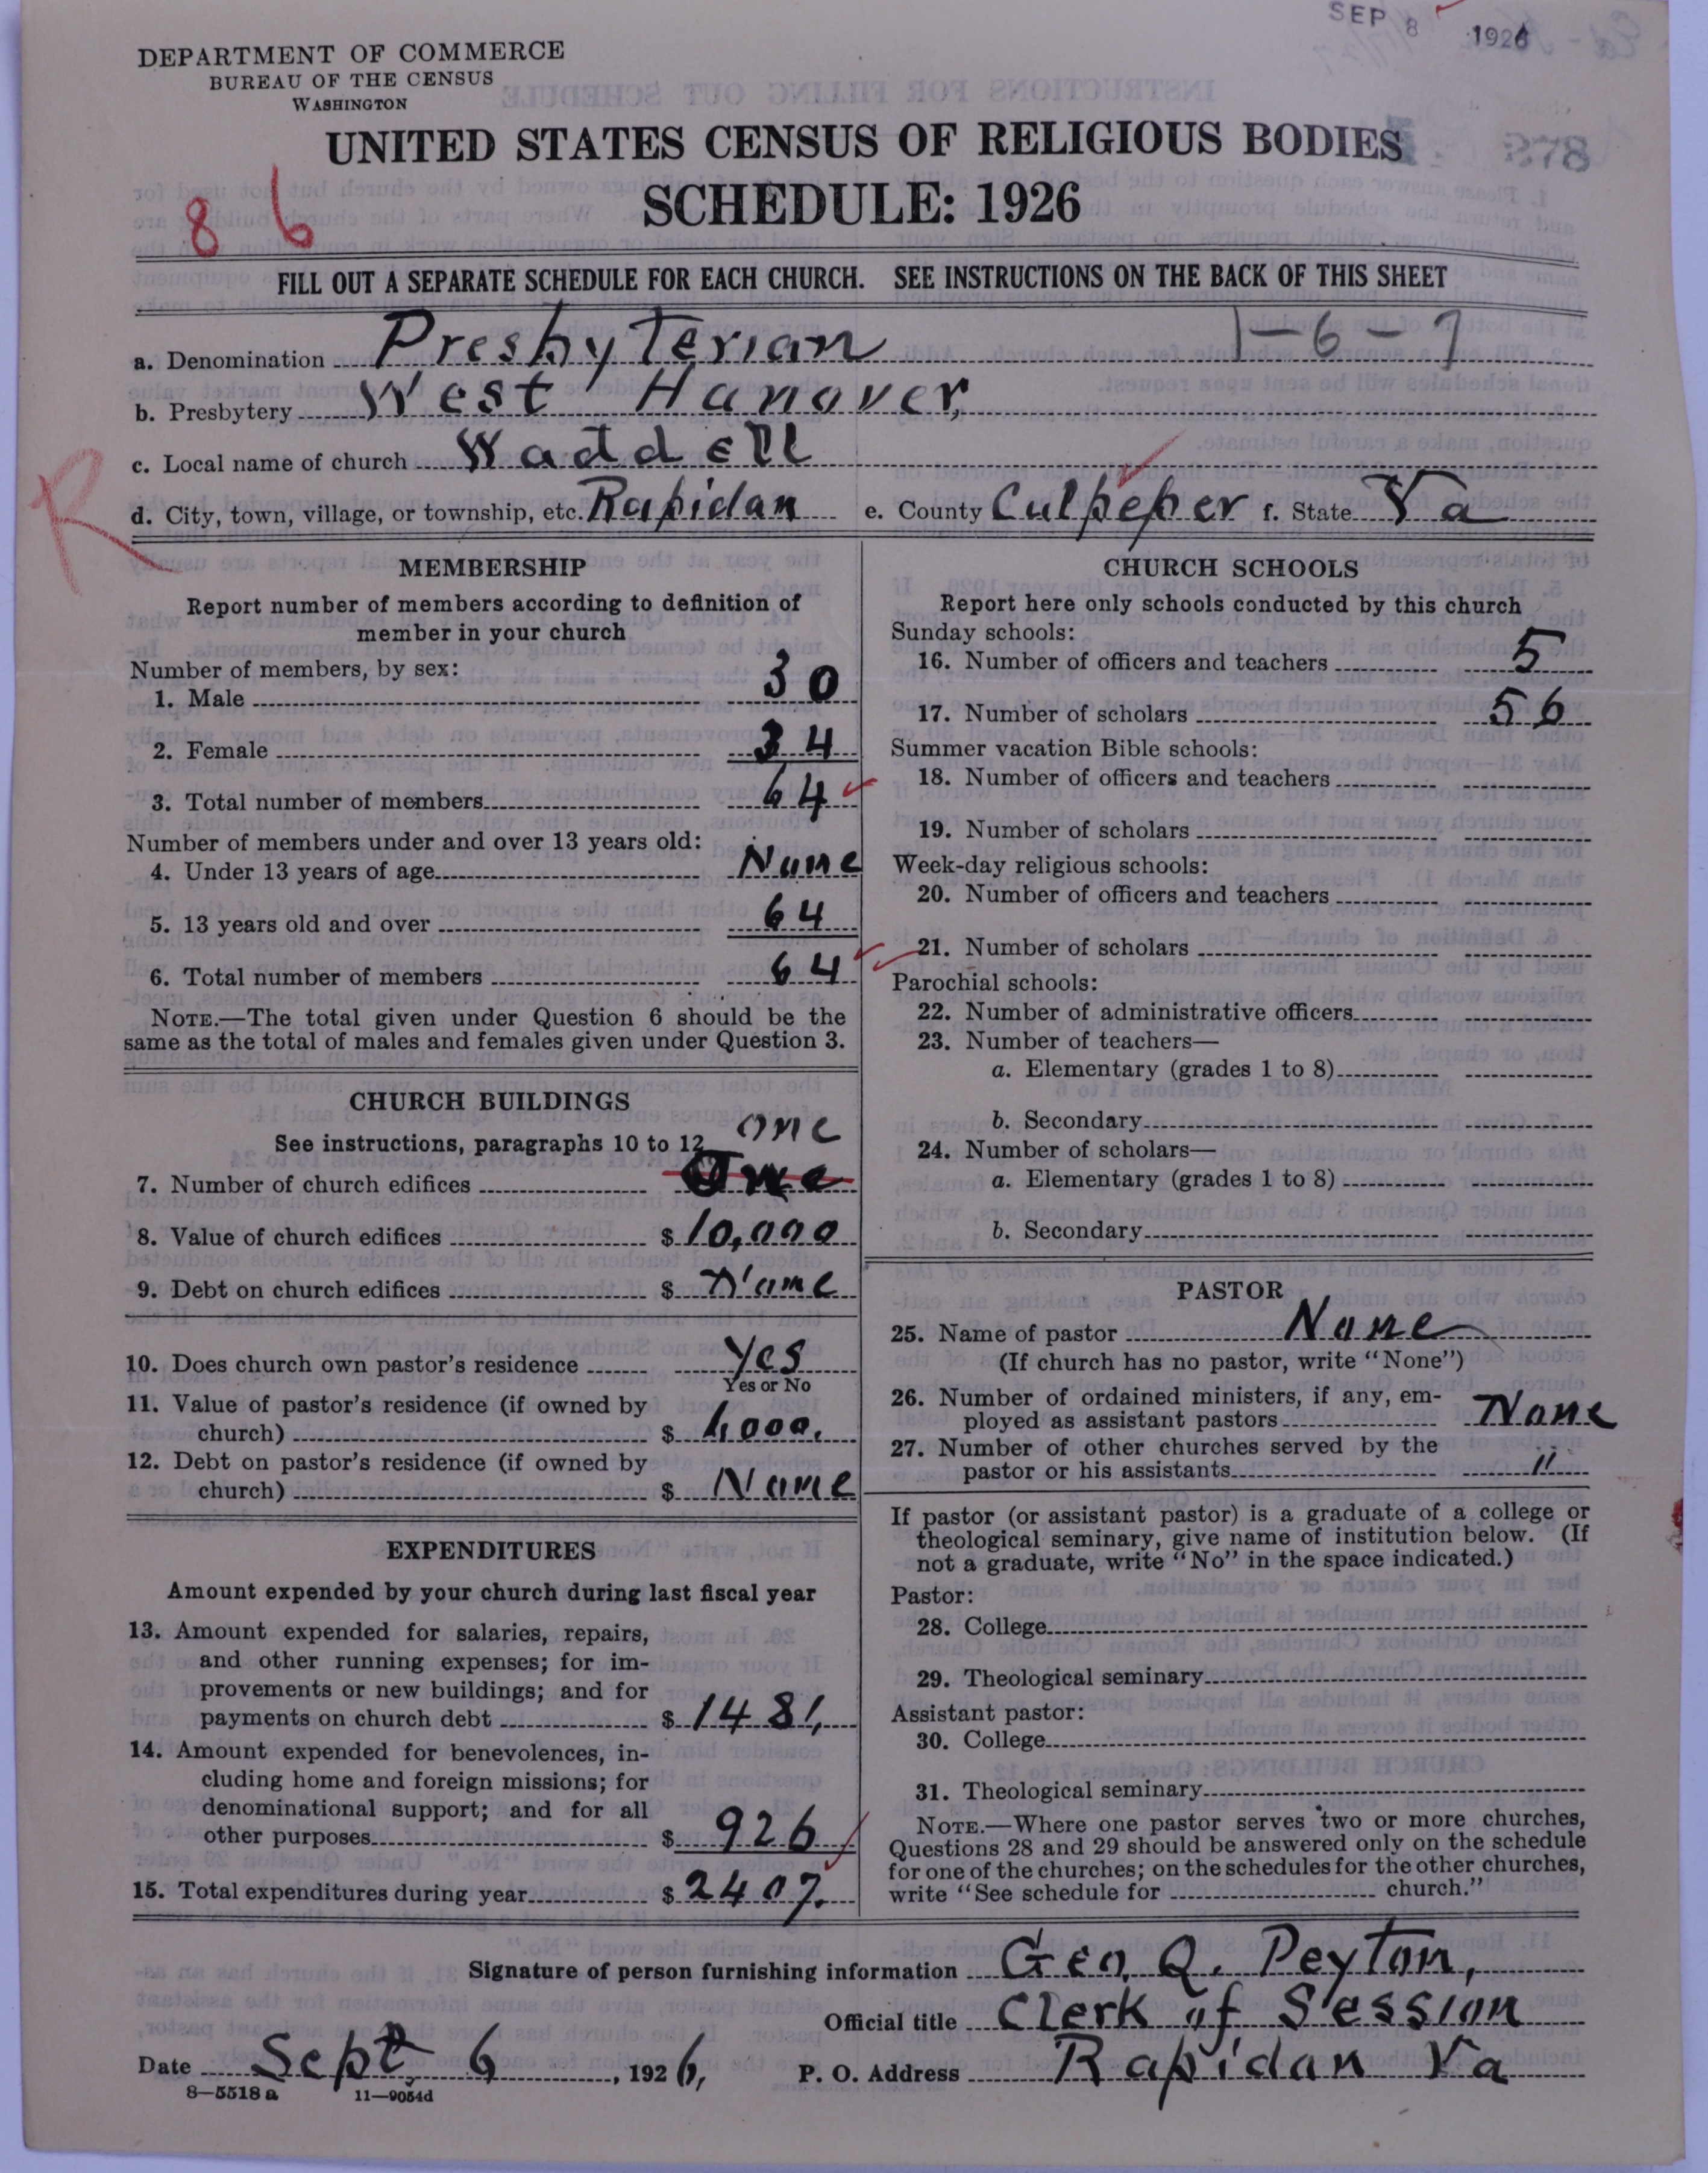 SEP 8 1926
DEPARTMENT OF COMMERCE
BUREAU OF THE CENSUS
WASHINGTON
UNITED STATES CENSUS OF RELIGIOUS BODIES
SCHEDULE: 1926
8 6
278
FILL OUT A SEPARATE SCHEDULE FOR EACH CHURCH. SEE INSTRUCTIONS ON THE BACK OF THIS SHEET
a. Denomination Presbyterian 1-6-7
b. Presbytery West Hanover,
c. Local name of church Waddell
R
d. City, town, village, or township, etc. Rapidan e. County Culpeper f. State Va
MEMBERSHIP
Report number of members according to definition of
member in your church
Number of members, by sex:
1. Male 30
2. Female 34
3. Total number of members 64
Number of members under and over 13 years old:
4. Under 13 years of age None
5. 13 years old and over 64
6. Total number of members 64
NOTE.—The total given under Question 6 should be the
same as the total of males and females given under Question 3.
CHURCH BUILDINGS
See instructions, paragraphs 10 to 12
one
7. Number of church edifices One
8. Value of church edifices $ 10,000
9. Debt on church edifices $ None
10. Does church own pastor's residence Yes
Yes or No
11. Value of pastor's residence (if owned by
church) $ 4,000.
12. Debt on pastor's residence (if owned by
church) $ None
EXPENDITURES
Amount expended by your church during last fiscal year
13. Amount expended for salaries, repairs,
and other running expenses; for im-
provements or new buildings; and for
payments on church debt $ 1481,
14. Amount expended for benevolences, in-
cluding home and foreign missions; for
denominational support; and for all
other purposes $ 926
15. Total expenditures during year $ 2407.
CHURCH SCHOOLS
Report here only schools conducted by this church
Sunday schools:
16. Number of officers and teachers 5
17. Number of scholars 56
Summer vacation Bible schools:
18. Number of officers and teachers
19. Number of scholars
Week-day religious schools:
20. Number of officers and teachers
21. Number of scholars
Parochial schools:
22. Number of administrative officers
23. Number of teachers—
a. Elementary (grades 1 to 8)
b. Secondary
24. Number of scholars—
a. Elementary (grades 1 to 8)
b. Secondary
PASTOR
25. Name of pastor None
(If church has no pastor, write "None")
26. Number of ordained ministers, if any, em-
ployed as assistant pastors None
27. Number of other churches served by the
pastor or his assistants "
If pastor (or assistant pastor) is a graduate of a college or
theological seminary, give name of institution below. (If
not a graduate, write "No" in the space indicated.)
Pastor:
28. College
29. Theological seminary
Assistant pastor:
30. College
31. Theological seminary
NOTE.—Where one pastor serves two or more churches,
Questions 28 and 29 should be answered only on the schedule
for one of the churches; on the schedules for the other churches,
write "See schedule for church."
Signature of person furnishing information Geo. Q. Peyton,
Official title Clerk of Session
Date Sept. 6, 1926, P. O. Address Rapidan Va
8—5518 a 11—9054d